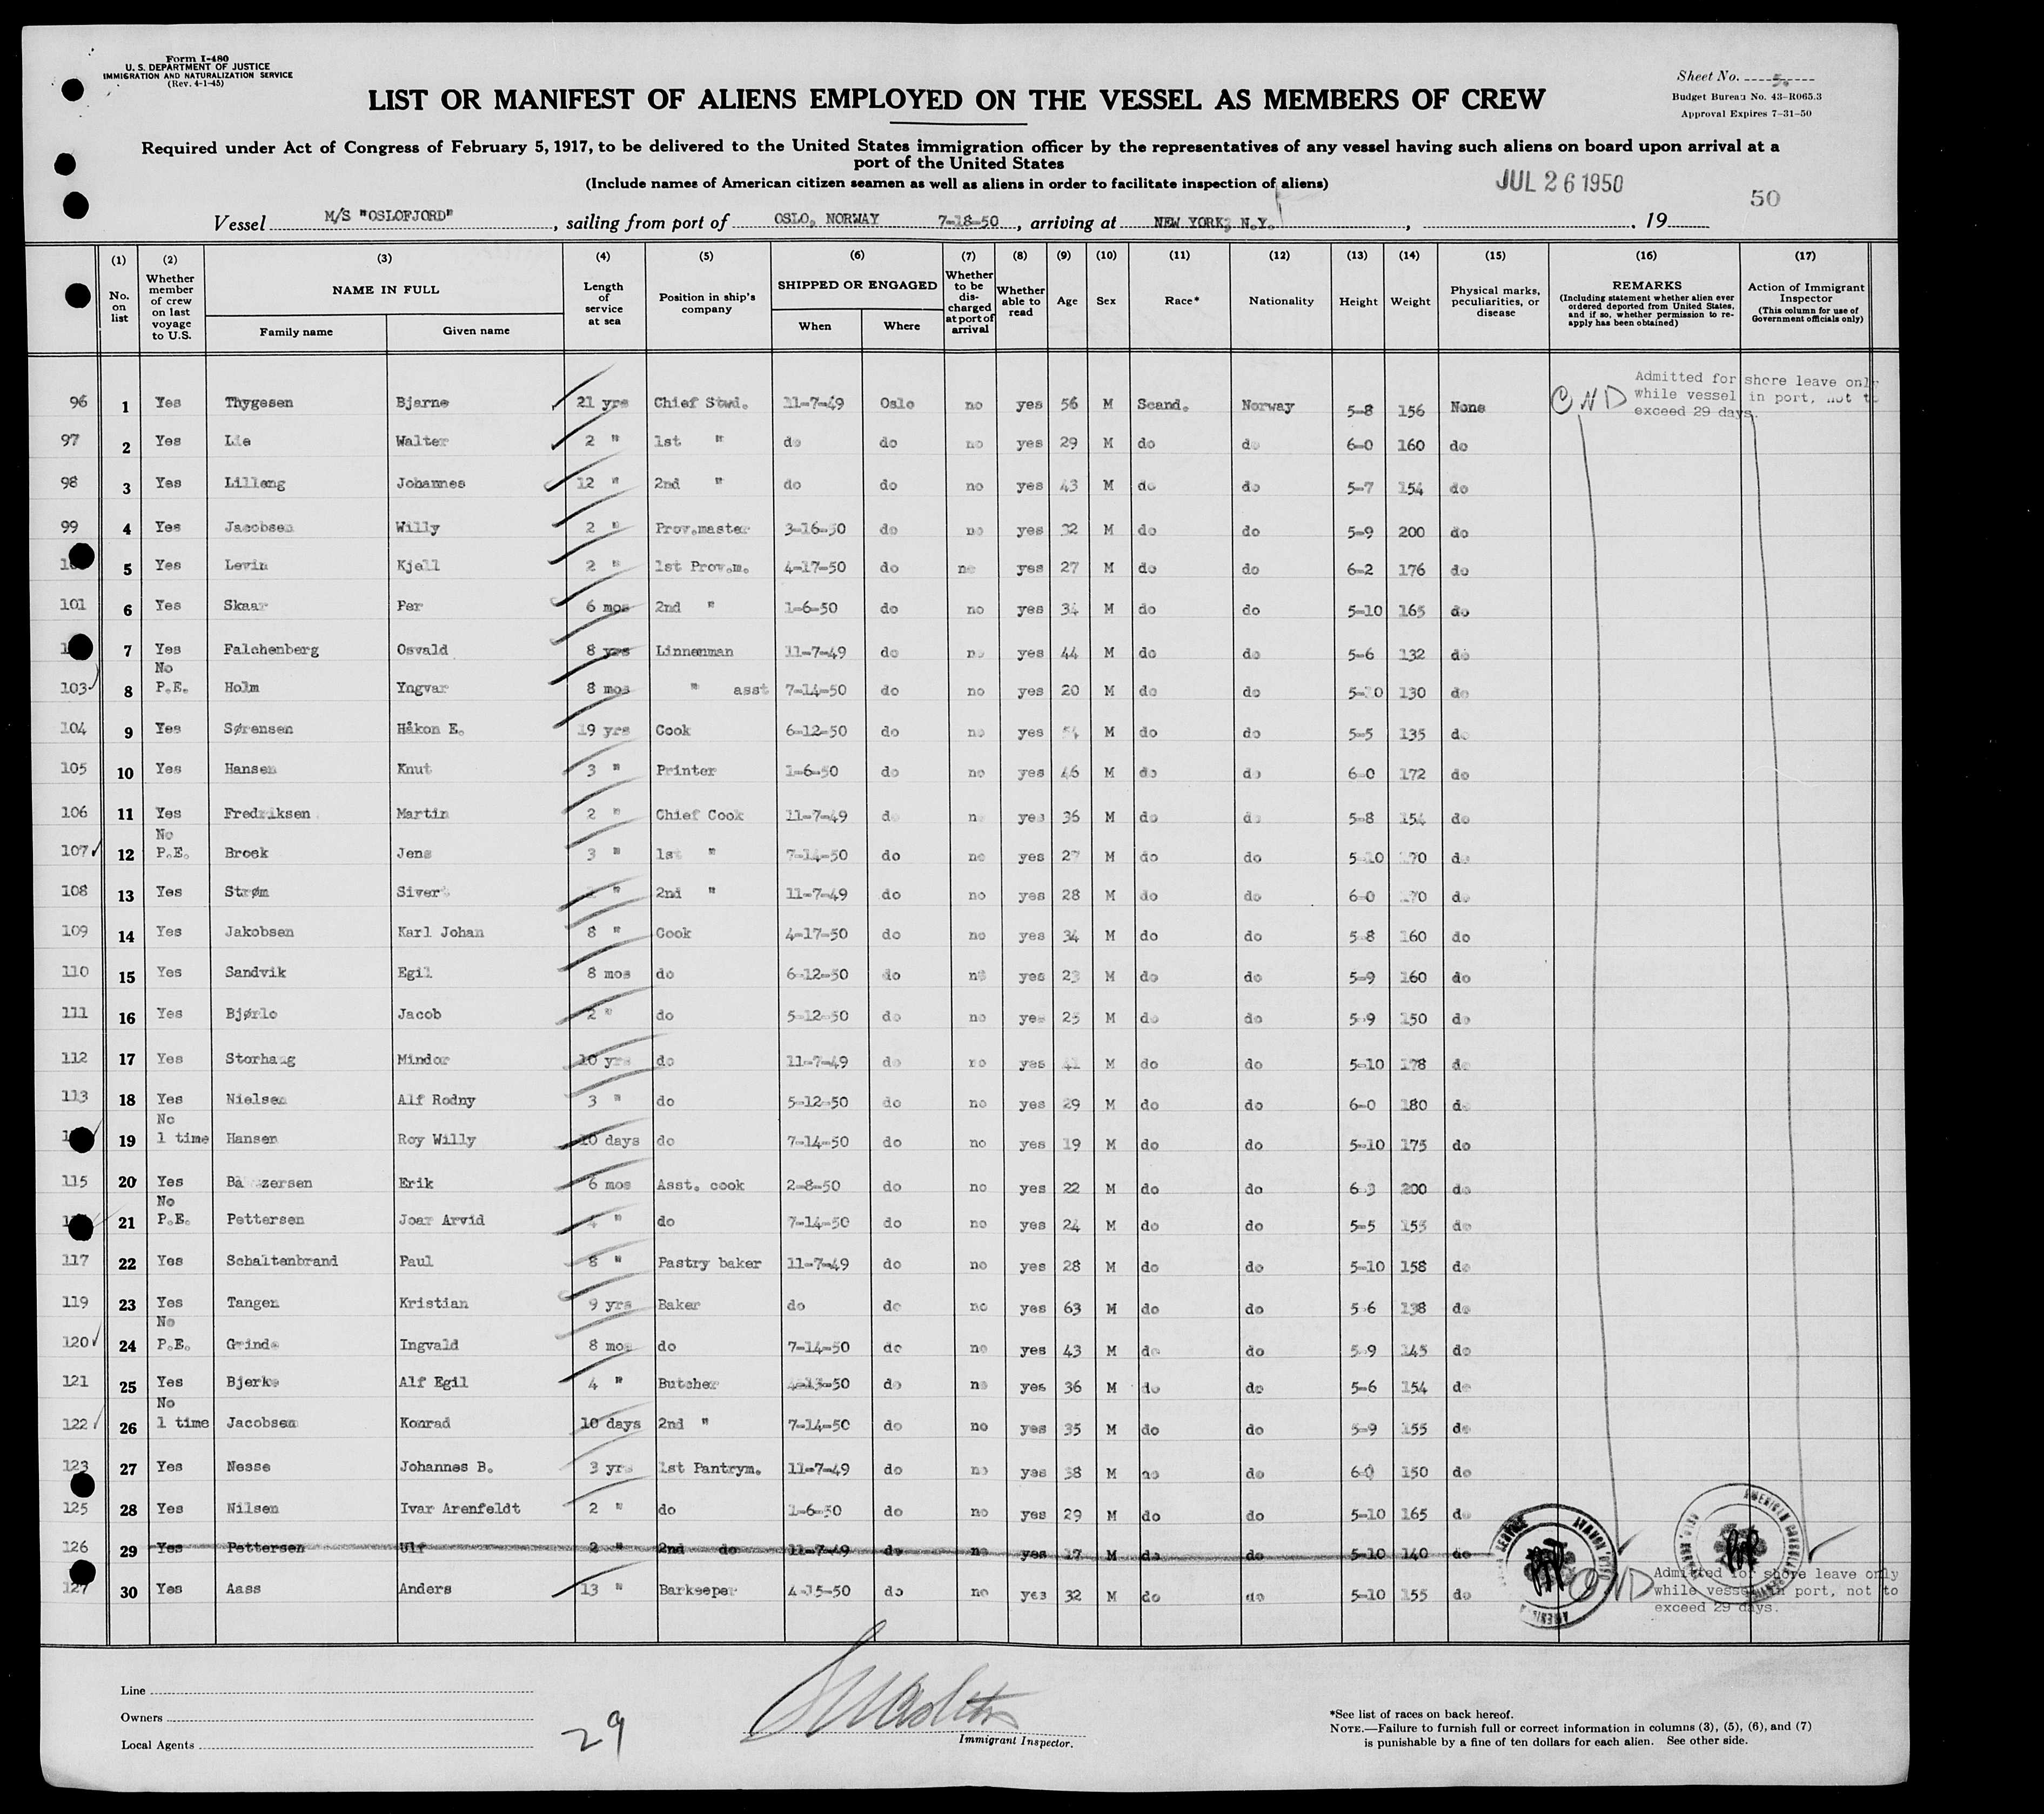 Form I-480
U. S. DEPARTMENT OF JUSTICE
IMMIGRATION AND NATURALIZATION SERVICE
(Rev. 4-1-45)
Sheet No. 5.
Budget Bureau No. 43-R065.3
Approval Expires 7-31-50
LIST OR MANIFEST OF ALIENS EMPLOYED ON THE VESSEL AS MEMBERS OF CREW
Required under Act of Congress of February 5, 1917, to be delivered to the United States immigration officer by the representatives of any vessel having such aliens on board upon arrival at a
port of the United States
(Include names of American citizen seamen as well as aliens in order to facilitate inspection of aliens)
JUL 26 1950
50
Vessel M/S "OSLOFJORD", sailing from port of OSLO, NORWAY 7-18-50, arriving at NEW YORK, N.Y., 19
(1) No. on list (2) Whether member of crew on last voyage to U.S. (3) NAME IN FULL Family name Given name (4) Length of service at sea (5) Position in ship's company (6) SHIPPED OR ENGAGED When Where (7) Whether to be discharged at port of arrival (8) Whether able to read (9) Age (10) Sex (11) Race* (12) Nationality (13) Height (14) Weight (15) Physical marks, peculiarities, or disease (16) REMARKS (Including statement whether alien ever ordered deported from United States, and if so, whether permission to re-apply has been obtained) (17) Action of Immigrant Inspector (This column for use of Government officials only)
96 1 Yes Thygesen Bjarne 21 yrs Chief Stwd. 11-7-49 Oslo no yes 56 M Scand. Norway 5-8 156 None
Admitted for shore leave only
while vessel in port, not to
exceed 29 days.
97 2 Yes Lie Walter 2 " 1st " do do no yes 29 M do do 6-0 160 do
98 3 Yes Lilleng Johannes 12 " 2nd " do do no yes 43 M do do 5-7 154 do
99 4 Yes Jacobsen Willy 2 " Prov.master 3-16-50 do no yes 32 M do do 5-9 200 do
5 Yes Levin Kjell 2 " 1st Prov.m. 4-17-50 do no yes 27 M do do 6-2 176 do
101 6 Yes Skaar Per 6 mos 2nd " 1-6-50 do no yes 34 M do do 5-10 165 do
7 Yes Falchenberg Osvald 8 yrs Linnenman 11-7-49 do no yes 44 M do do 5-6 132 do
103 8 No P.E. Holm Yngvar 8 mos " asst 7-14-50 do no yes 20 M do do 5-10 130 do
104 9 Yes Sørensen Håkon E. 19 yrs Cook 6-12-50 do no yes 54 M do do 5-5 135 do
105 10 Yes Hansen Knut 3 " Printer 1-6-50 do no yes 46 M do do 6-0 172 do
106 11 Yes Fredriksen Martin 2 " Chief Cook 11-7-49 do no yes 36 M do do 5-8 154 do
107 12 No P.E. Broek Jens 3 " 1st " 7-14-50 do no yes 27 M do do 5-10 170 do
108 13 Yes Strøm Sivert " 2nd " 11-7-49 do no yes 28 M do do 6-0 170 do
109 14 Yes Jakobsen Karl Johan 8 " Cook 4-17-50 do no yes 34 M do do 5-8 160 do
110 15 Yes Sandvik Egil 8 mos do 6-12-50 do no yes 23 M do do 5-9 160 do
111 16 Yes Bjørlo Jacob 2 " do 5-12-50 do no yes 25 M do do 5-9 150 do
112 17 Yes Storhaug Mindor 10 yrs do 11-7-49 do no yes 41 M do do 5-10 178 do
113 18 Yes Nielsen Alf Rodny 3 " do 5-12-50 do no yes 29 M do do 6-0 180 do
19 No 1 time Hansen Roy Willy 10 days do 7-14-50 do no yes 19 M do do 5-10 175 do
115 20 Yes Erik 6 mos Asst. cook 2-8-50 do no yes 22 M do do 200 do
21 No P.E. Pettersen Joar Arvid 4 " do 7-14-50 do no yes 24 M do do 5-5 155 do
117 22 Yes Schaltenbrand Paul 8 " Pastry baker 11-7-49 do no yes 28 M do do 5-10 158 do
119 23 Yes Tangen Kristian 9 yrs Baker do do no yes 63 M do do 5-6 138 do
120 24 No P.E. Grinde Ingvald 8 mos do 7-14-50 do no yes 43 M do do 5-9 145 do
121 25 Yes Bjerke Alf Egil 4 " Butcher 4-13-50 do no yes 36 M do do 5-6 154 do
122 26 No 1 time Jacobsen Konrad 10 days 2nd " 7-14-50 do no yes 35 M do do 5-9 155 do
123 27 Yes Nesse Johannes B. 3 yrs 1st Pantrym. 11-7-49 do no yes 38 M do do 6-0 150 do
125 28 Yes Nilsen Ivar Arenfeldt 2 " do 1-6-50 do no yes 29 M do do 5-10 165 do
126 29 Yes Pettersen Ulf 2 " 2nd do 11-7-49 do no yes 17 M do do 5-10 140 do
127 30 Yes Aass Anders 13 " Barkeeper 4-15-50 do no yes 32 M do do 5-10 155 do
Admitted for shore leave only
while vessel in port, not to
exceed 29 days.
Line
Owners
Local Agents
29
Immigrant Inspector.
*See list of races on back hereof.
NOTE.—Failure to furnish full or correct information in columns (3), (5), (6), and (7)
is punishable by a fine of ten dollars for each alien. See other side.